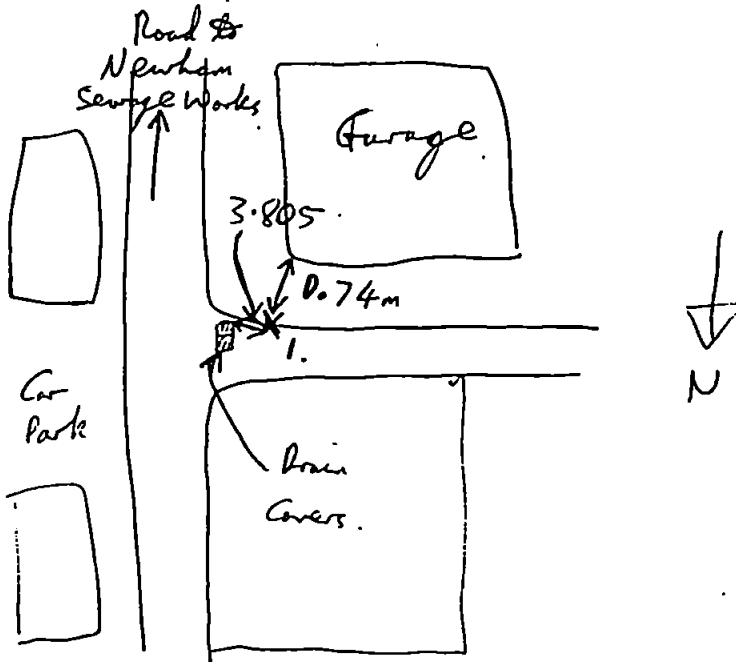 Road to
Newham
Sewage Works
Garage.
3.805
0.74m
1.
N
Car
Park
Drain
Covers.